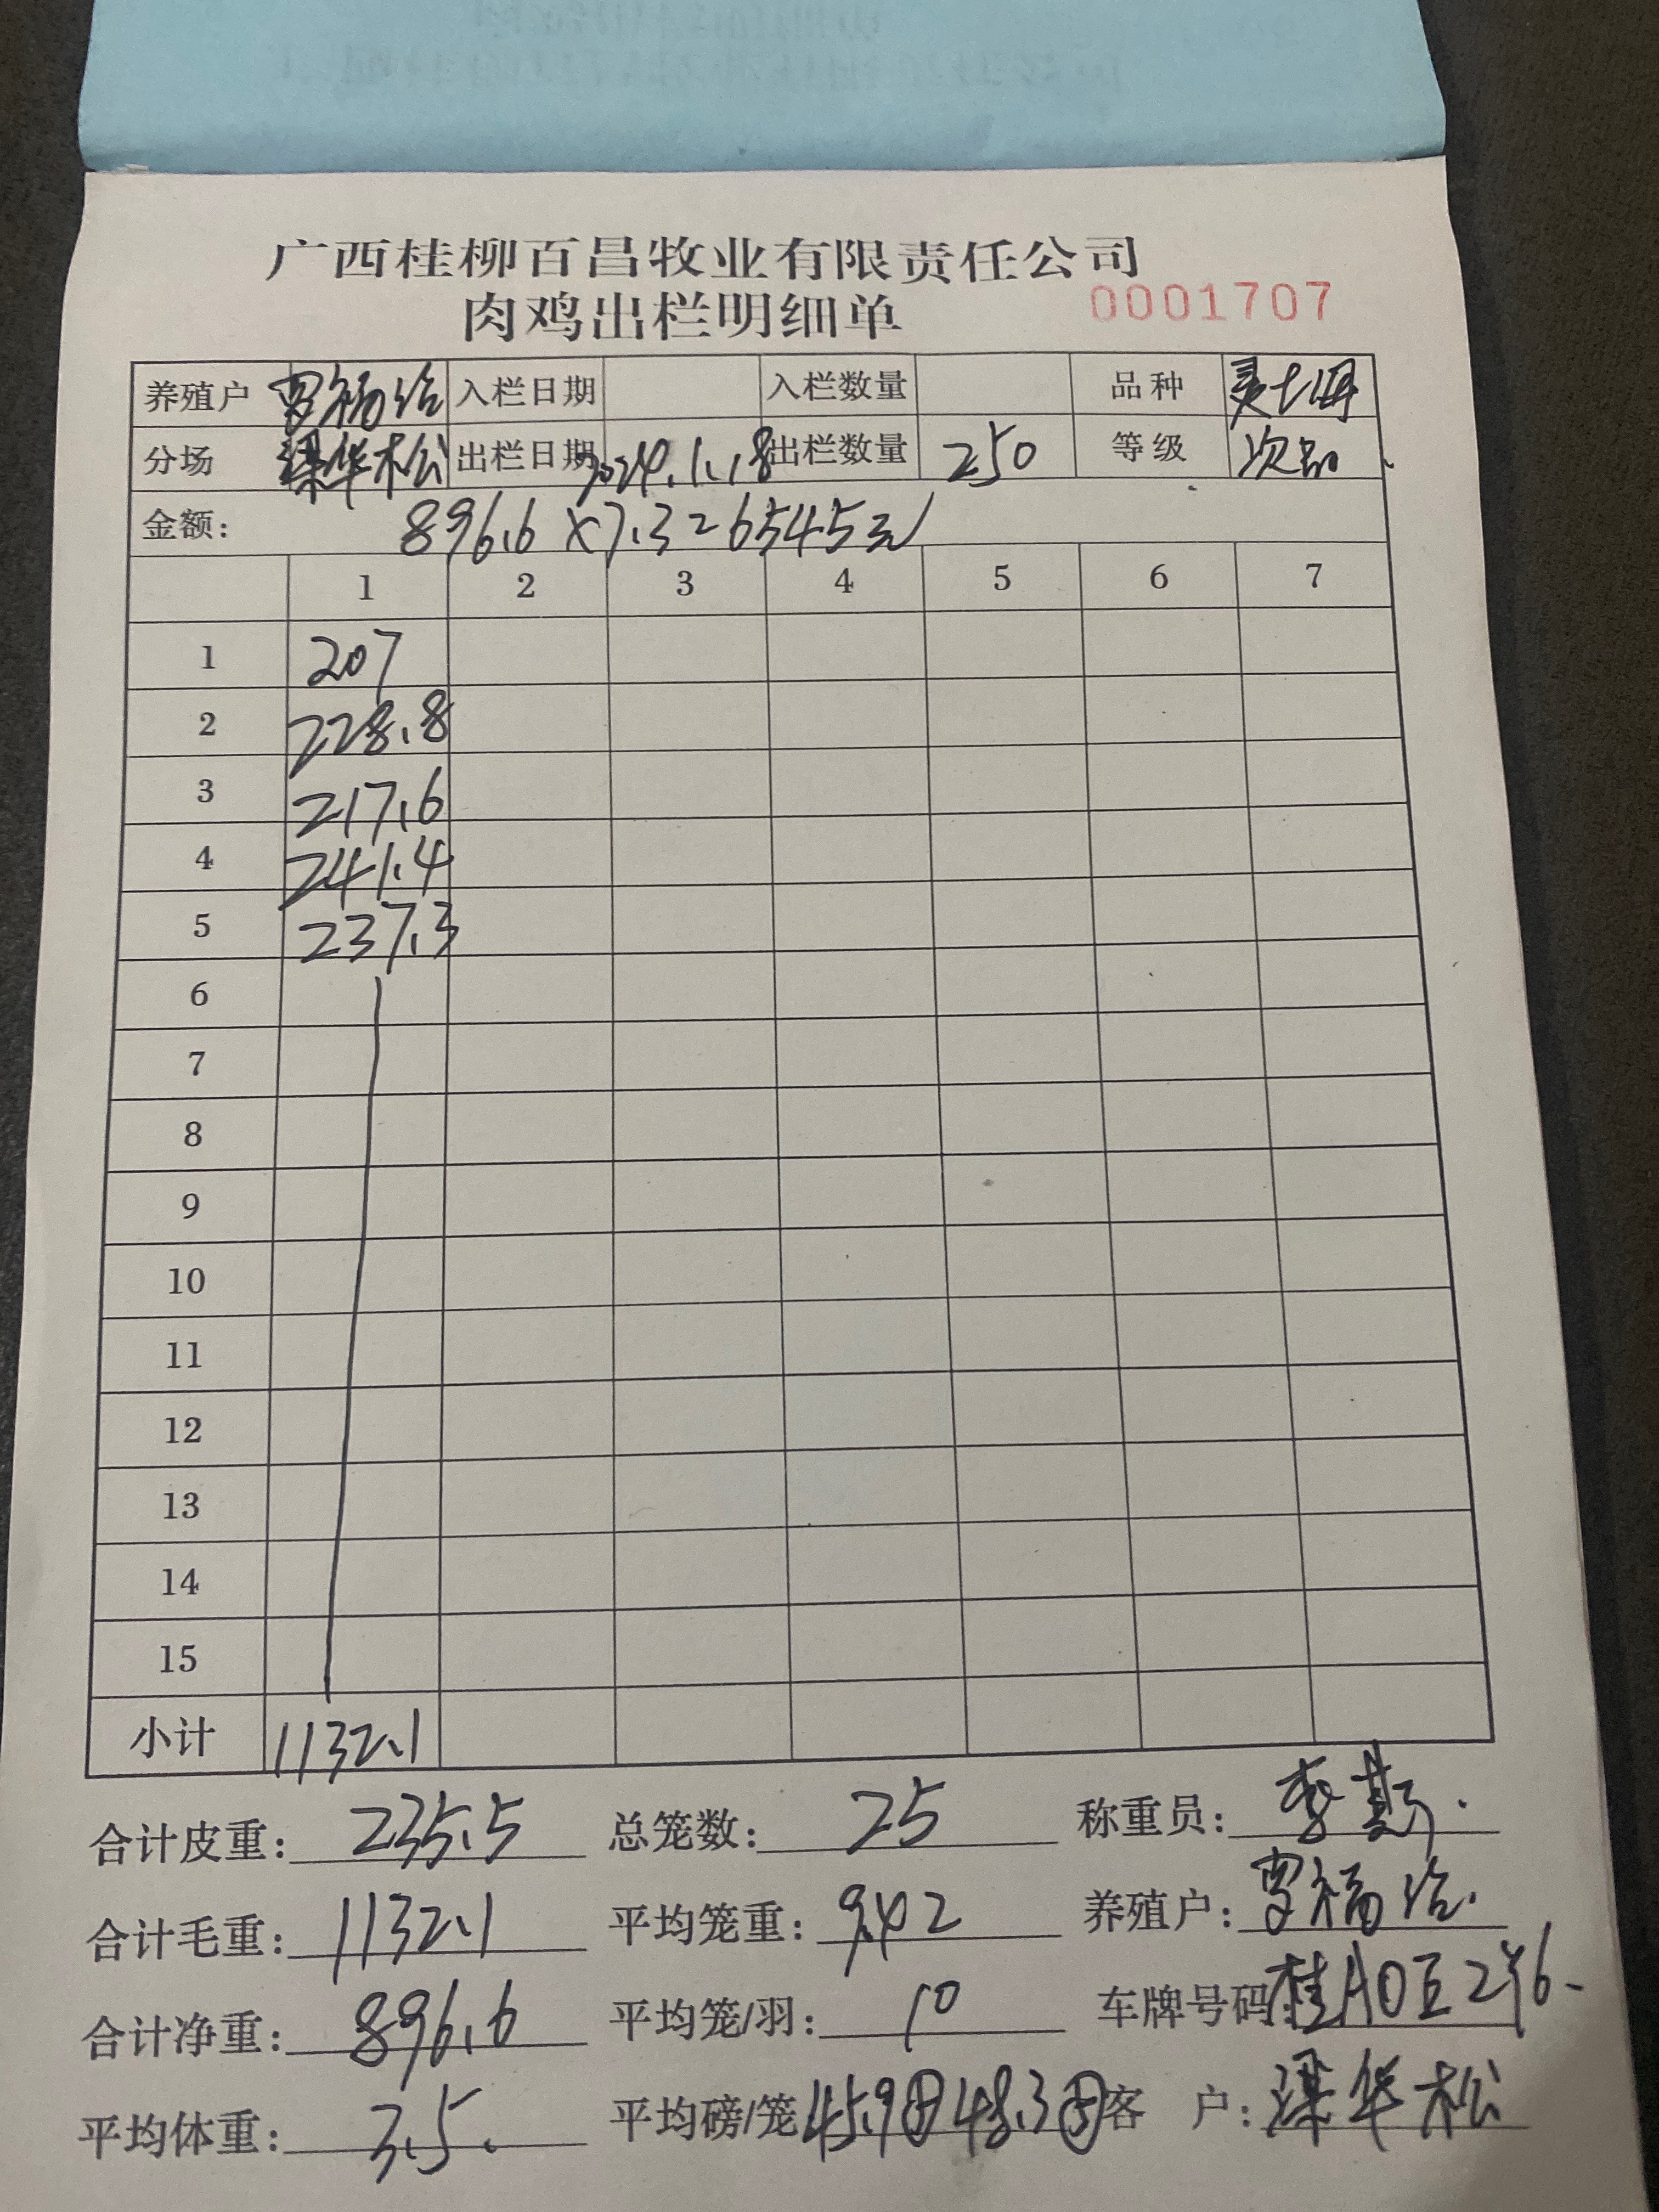 广西桂柳百昌牧业有限责任公司
肉鸡出栏明细单 0001707
养殖户 罗福治 入栏日期 入栏数量 品种
分场 梁华松 出栏日期 2024.1.18 出栏数量 250 等级 次品
金额: 896.6×7.3=6545元
1 2 3 4 5 6 7
1 207
2 228.8
3 217.6
4 241.4
5 237.3
6
7
8
9
10
11
12
13
14
15
小计 1132.1
合计皮重: 235.5 总笼数: 25 称重员: 李
合计毛重: 1132.1 平均笼重: 9.42 养殖户: 罗福治.
合计净重: 896.6 平均笼/羽: 10 车牌号码:
平均体重: 3.5. 平均磅/笼 45.9 48.3 客 户: 梁华松